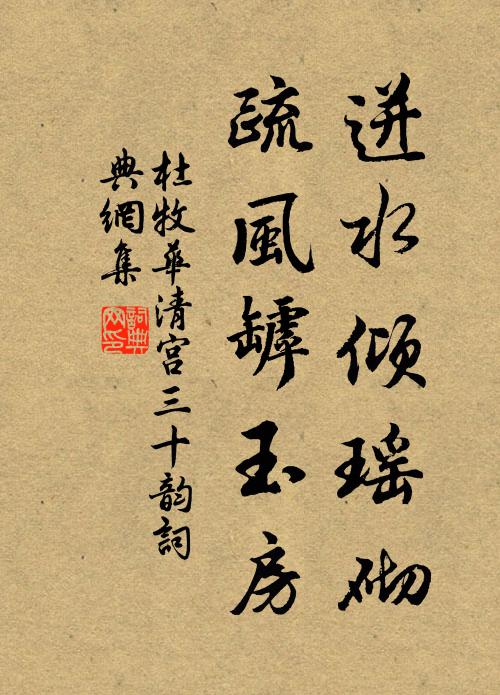 迸水倾瑶砌
疏風罅玉房
杜牧華清宫三十韵詞
典網集
詞典网印